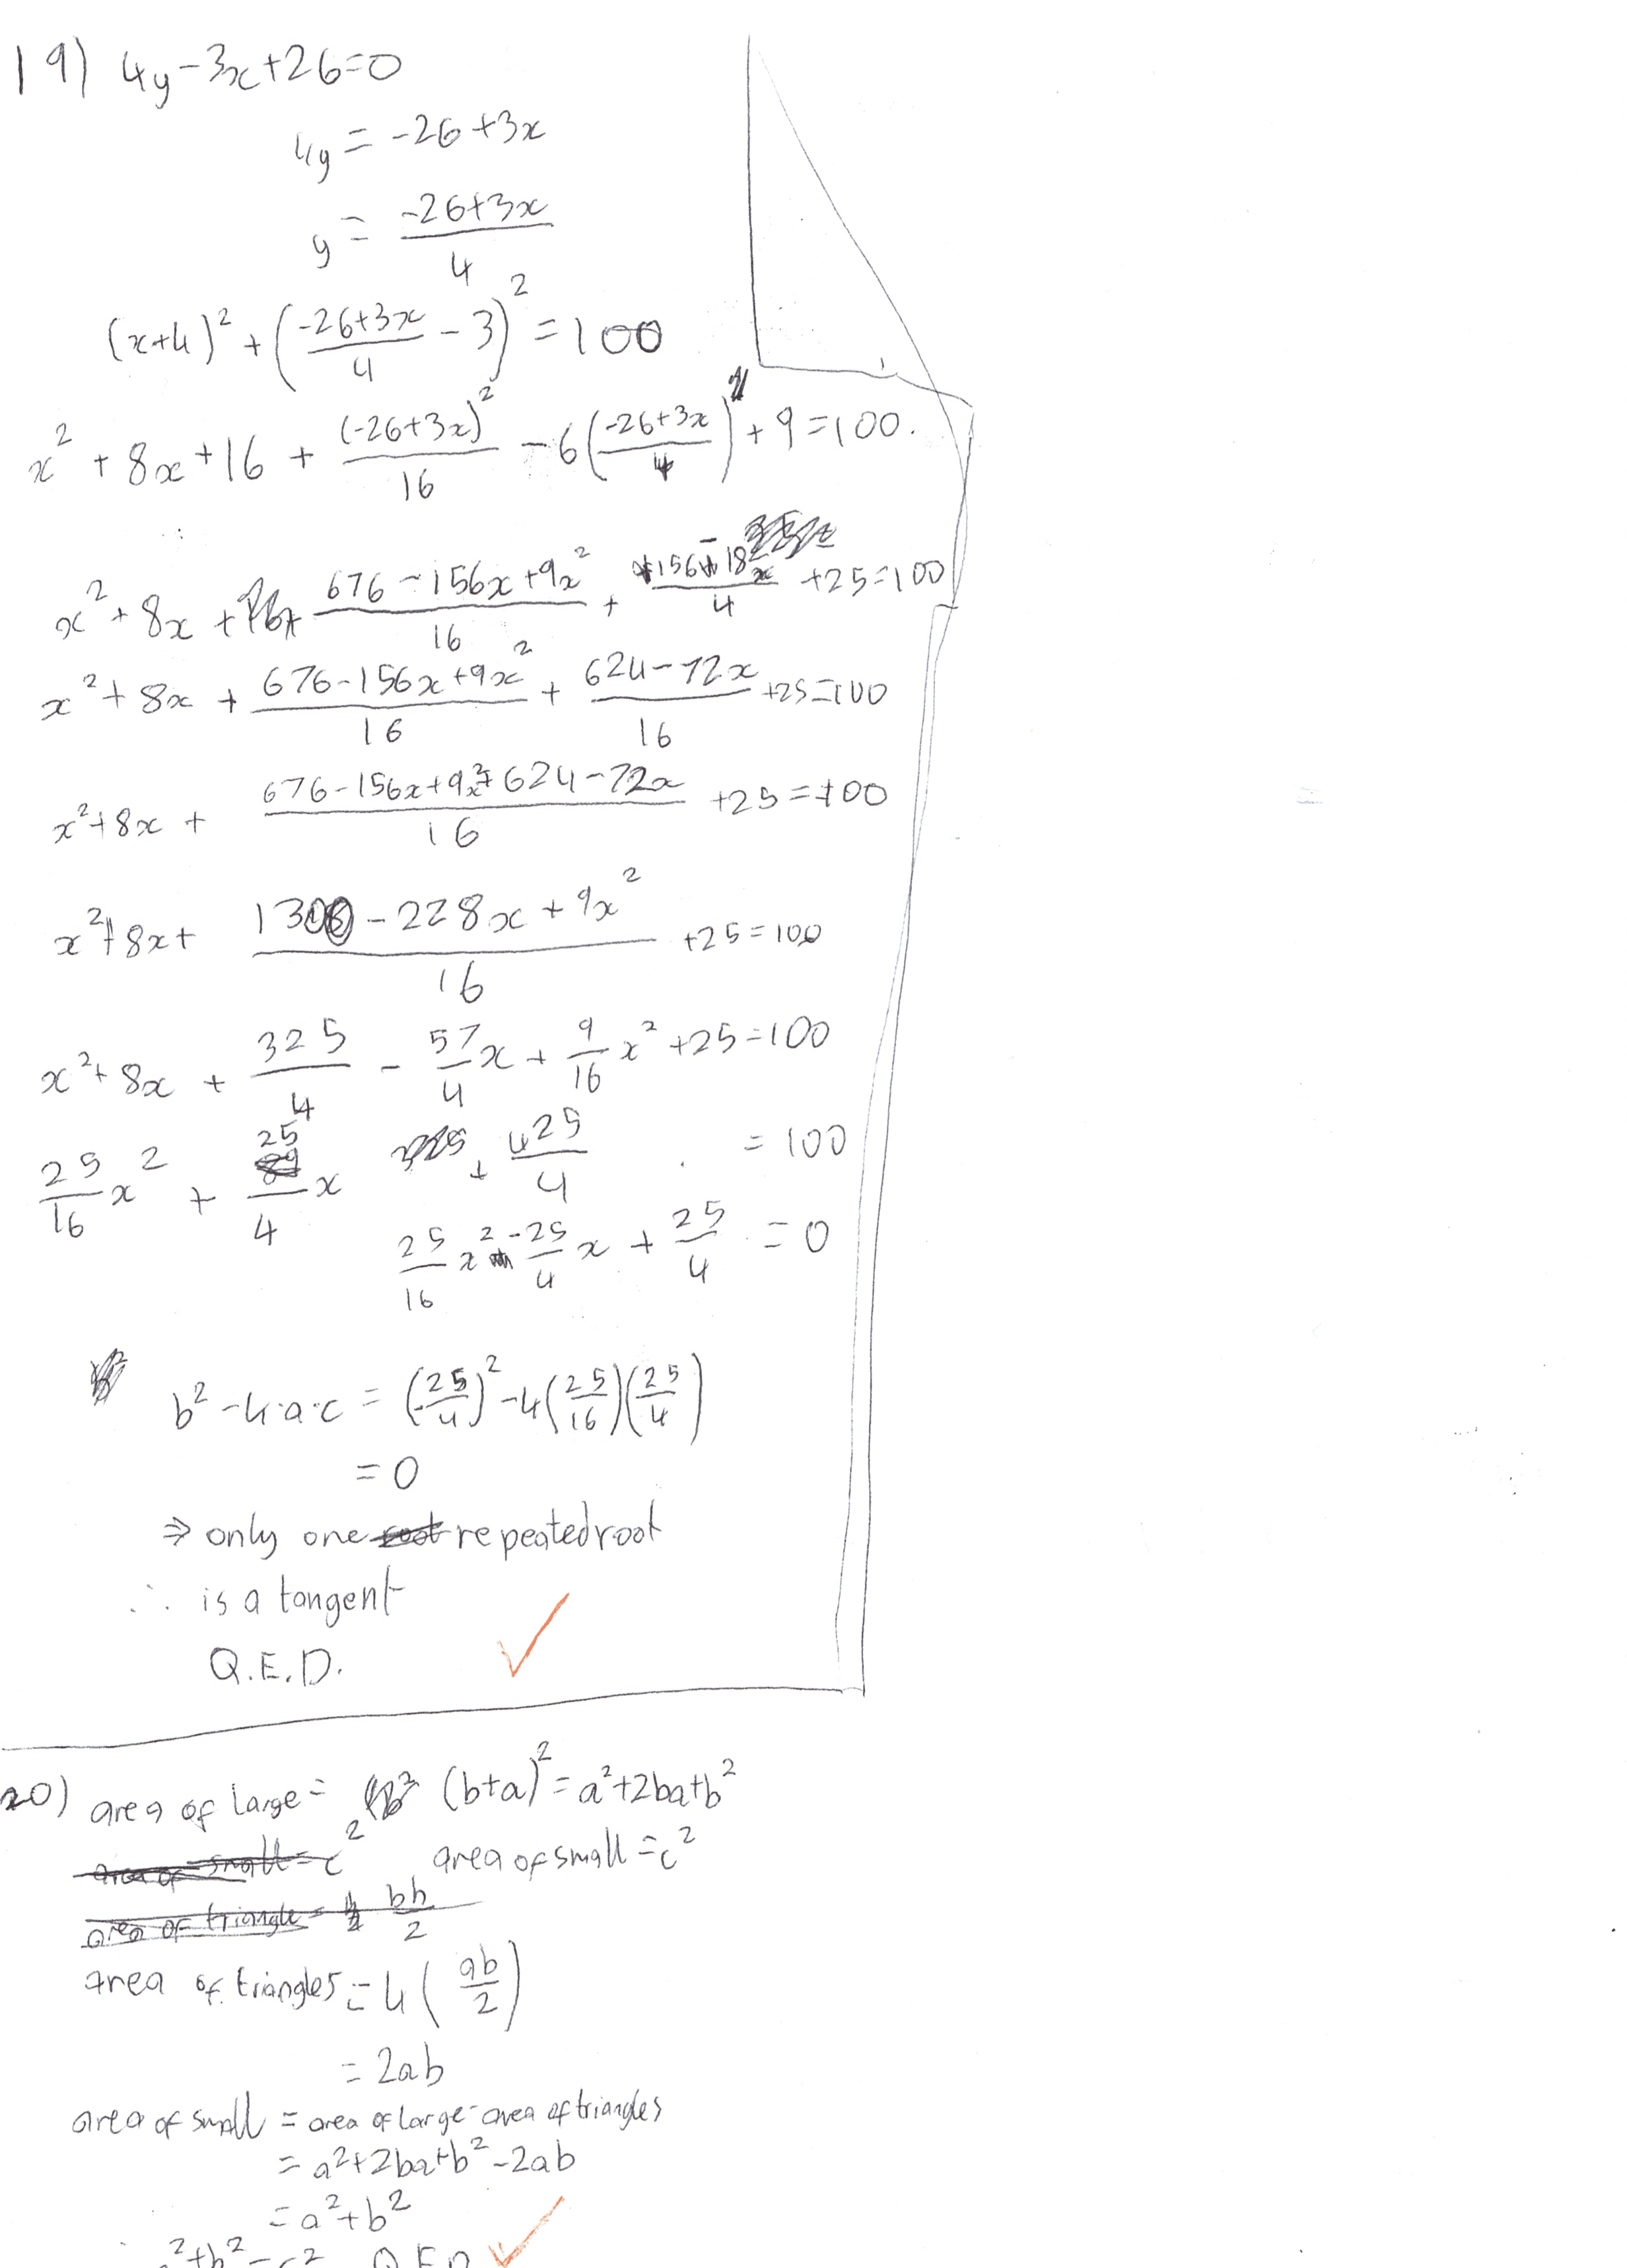 19) 4y-3x+26=0
4y = -26+3x
y = (-26+3x)/4
(x+4)² + ((-26+3x)/4 - 3)² = 100
x² + 8x + 16 + (-26+3x)²/16 - 6((-26+3x)/4) + 9 = 100.
x² + 8x + (676-156x+9x²)/16 + (156-18x)/4 + 25 = 100
x² + 8x + (676-156x+9x²)/16 + (624-72x)/16 + 25 = 100
x² + 8x + (676-156x+9x²+624-72x)/16 + 25 = 100
x² + 8x + (1300-228x+9x²)/16 + 25 = 100
x² + 8x + 325/4 - 57/4 x + 9/16 x² + 25 = 100
25/16 x² + 25/4 x + 425/4 = 100
25/16 x² - 25/4 x + 25/4 = 0
b² - 4·a·c = (25/4)² - 4(25/16)(25/4)
= 0
⇒ only one root repeated root
∴ is a tangent
Q.E.D.
20) area of large = (b+a)² = a²+2ba+b²
area of small = c² area of small = c²
area of triangle = bh/2
area of triangles = 4(ab/2)
= 2ab
area of small = area of large - area of triangles
= a²+2ba+b²-2ab
= a²+b²
²+b² = c² Q.E.D